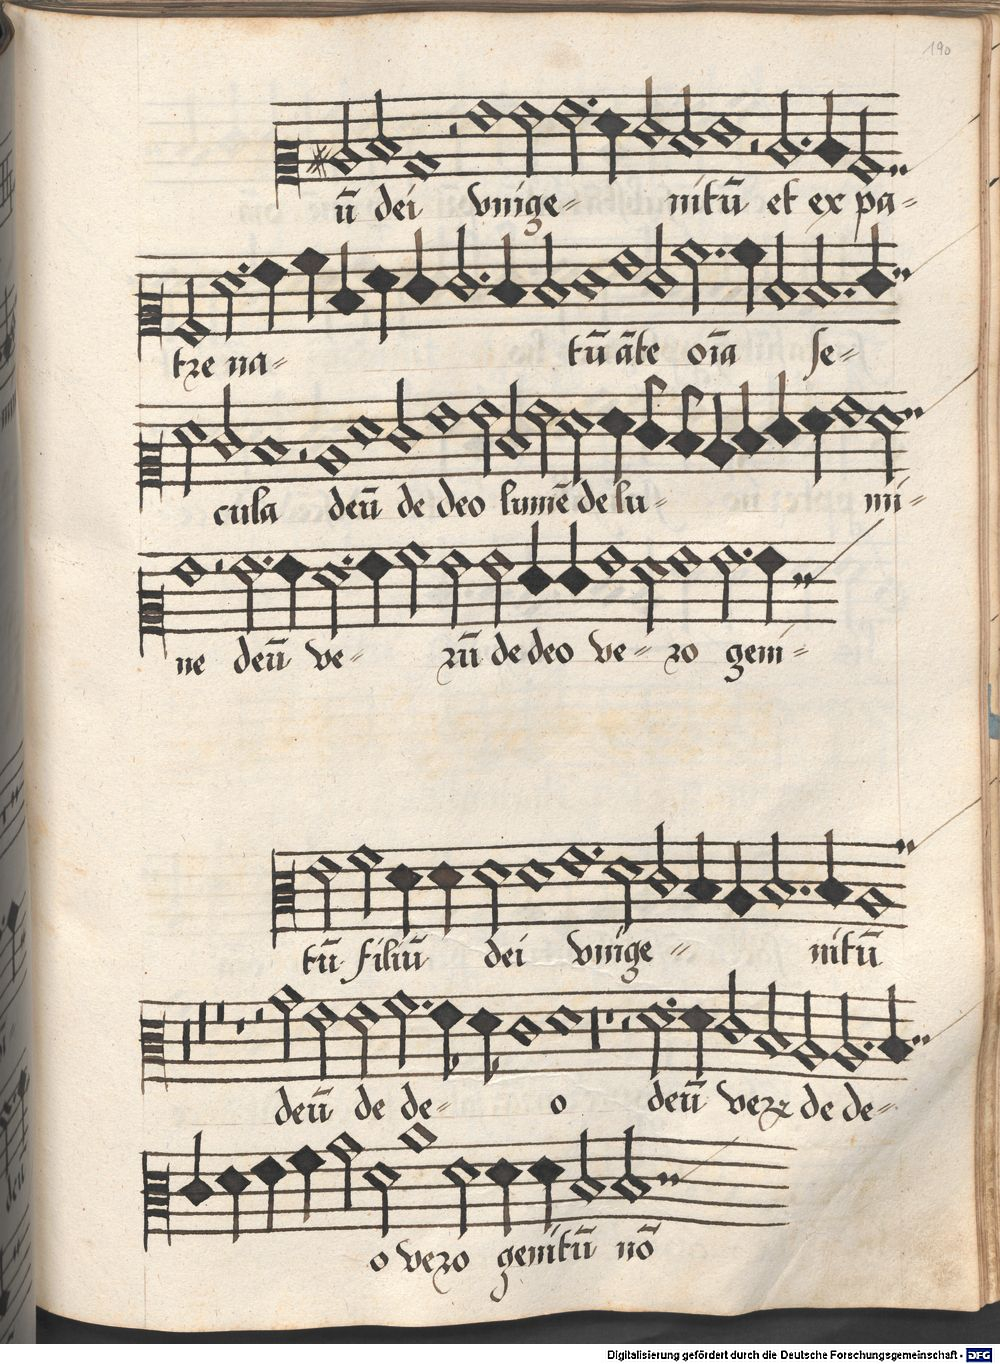 190
ū dei vnige- nitū et ex pa-
tre na- tū āte oīa se-
cula deū de deo lumē de lu- mi-
ne deū ve- rū de deo ve- ro geni-
tū filiū dei vnige- nitū
deū de de- o deū vero de de-
o vero genitū nō
Digitalisierung gefördert durch die Deutsche Forschungsgemeinschaft - DFG